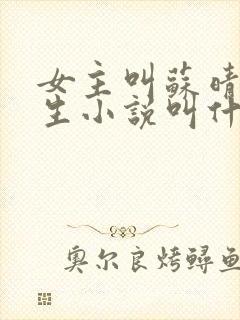 女主叫蘇晴
生小説叫什
奥尔良烤鲟鱼